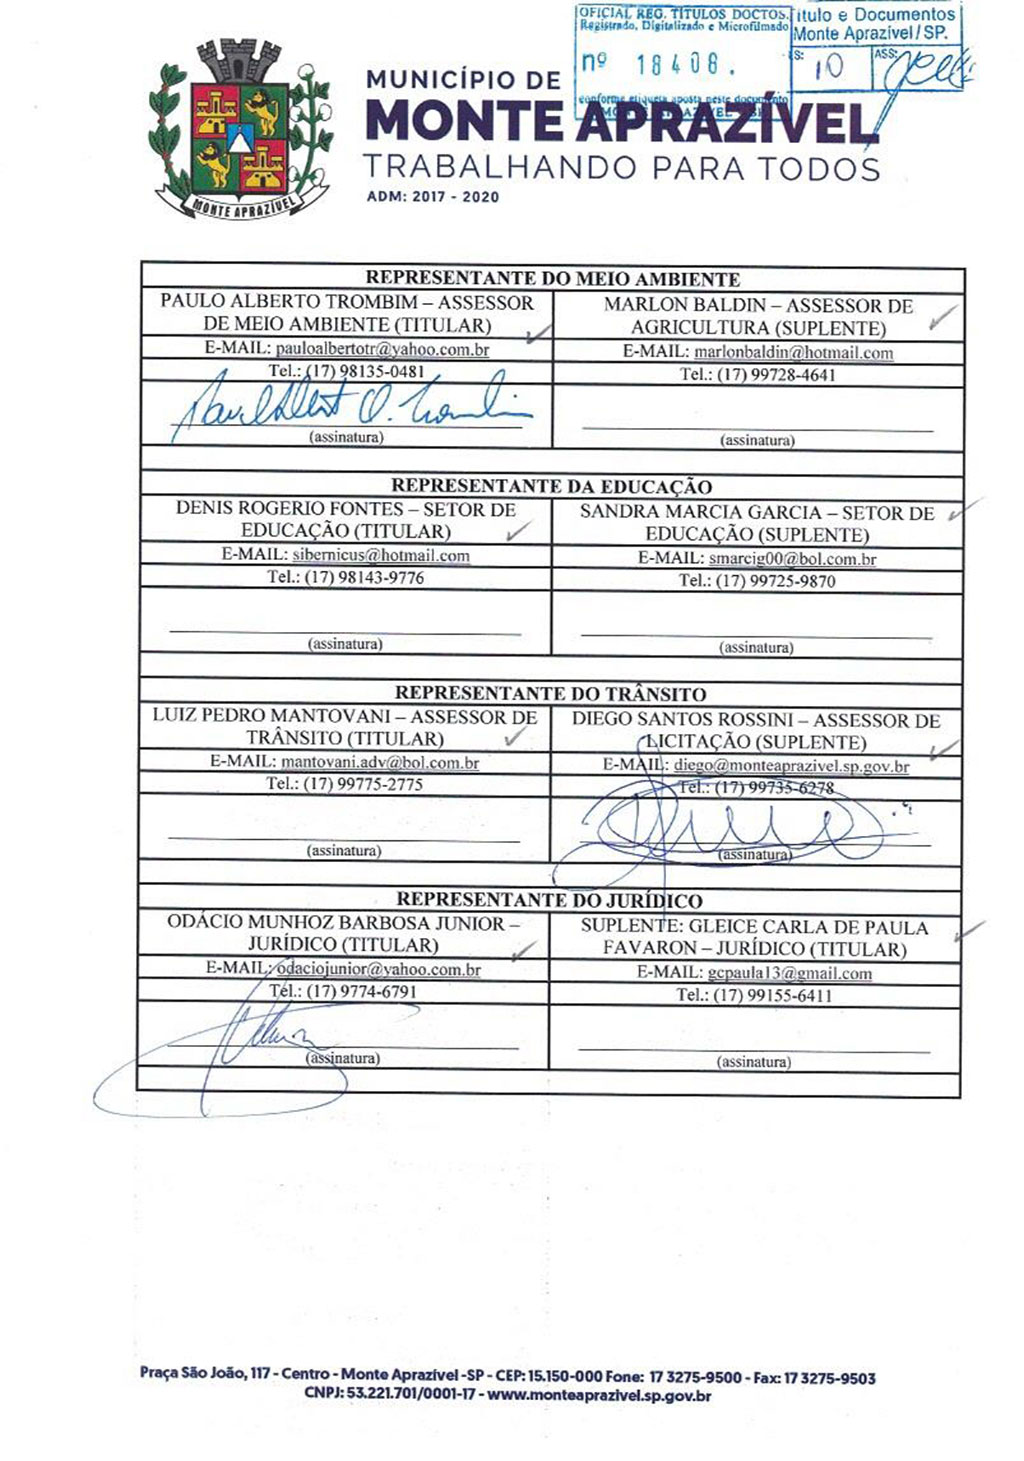 OFICIAL REG. TÍTULOS DOCTOS.
Registrado, Digitalizado e Microfilmado
nº 18408.
conforme etiqueta aposta neste documento
Título e Documentos
Monte Aprazível/SP.
S: 10 ASS:
MUNICÍPIO DE
MONTE APRAZÍVEL
TRABALHANDO PARA TODOS
ADM: 2017 - 2020
MONTE APRAZÍVEL
REPRESENTANTE DO MEIO AMBIENTE
PAULO ALBERTO TROMBIM – ASSESSOR
DE MEIO AMBIENTE (TITULAR)
E-MAIL: pauloalbertotr@yahoo.com.br
Tel.: (17) 98135-0481
(assinatura)
MARLON BALDIN – ASSESSOR DE
AGRICULTURA (SUPLENTE)
E-MAIL: marlonbaldin@hotmail.com
Tel.: (17) 99728-4641
(assinatura)
REPRESENTANTE DA EDUCAÇÃO
DENIS ROGERIO FONTES – SETOR DE
EDUCAÇÃO (TITULAR)
E-MAIL: sibernicus@hotmail.com
Tel.: (17) 98143-9776
(assinatura)
SANDRA MARCIA GARCIA – SETOR DE
EDUCAÇÃO (SUPLENTE)
E-MAIL: smarcig00@bol.com.br
Tel.: (17) 99725-9870
(assinatura)
REPRESENTANTE DO TRÂNSITO
LUIZ PEDRO MANTOVANI – ASSESSOR DE
TRÂNSITO (TITULAR)
E-MAIL: mantovani.adv@bol.com.br
Tel.: (17) 99775-2775
(assinatura)
DIEGO SANTOS ROSSINI – ASSESSOR DE
LICITAÇÃO (SUPLENTE)
E-MAIL: diego@monteaprazivel.sp.gov.br
Tel.: (17) 99735-6278
(assinatura)
REPRESENTANTE DO JURÍDICO
ODÁCIO MUNHOZ BARBOSA JUNIOR –
JURÍDICO (TITULAR)
E-MAIL: odaciojunior@yahoo.com.br
Tel.: (17) 9774-6791
(assinatura)
SUPLENTE: GLEICE CARLA DE PAULA
FAVARON – JURÍDICO (TITULAR)
E-MAIL: gcpaula13@gmail.com
Tel.: (17) 99155-6411
(assinatura)
Praça São João, 117 - Centro - Monte Aprazível -SP - CEP: 15.150-000 Fone: 17 3275-9500 - Fax: 17 3275-9503
CNPJ: 53.221.701/0001-17 - www.monteaprazivel.sp.gov.br